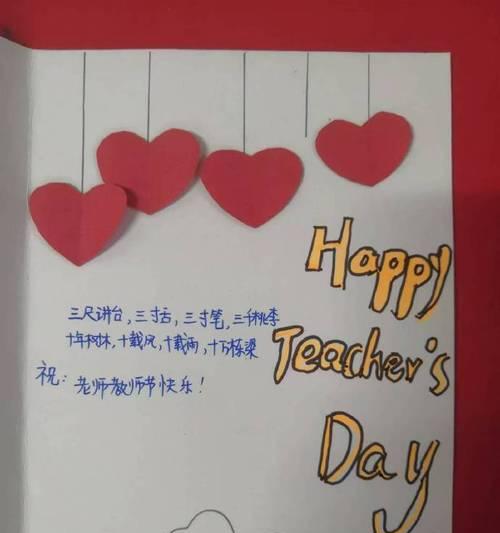 三尺讲台，三寸舌，三寸笔，三千桃李
十年树木，十载风，十载雨，十万栋梁
祝：老师教师节快乐！
Happy
Teacher's
Day